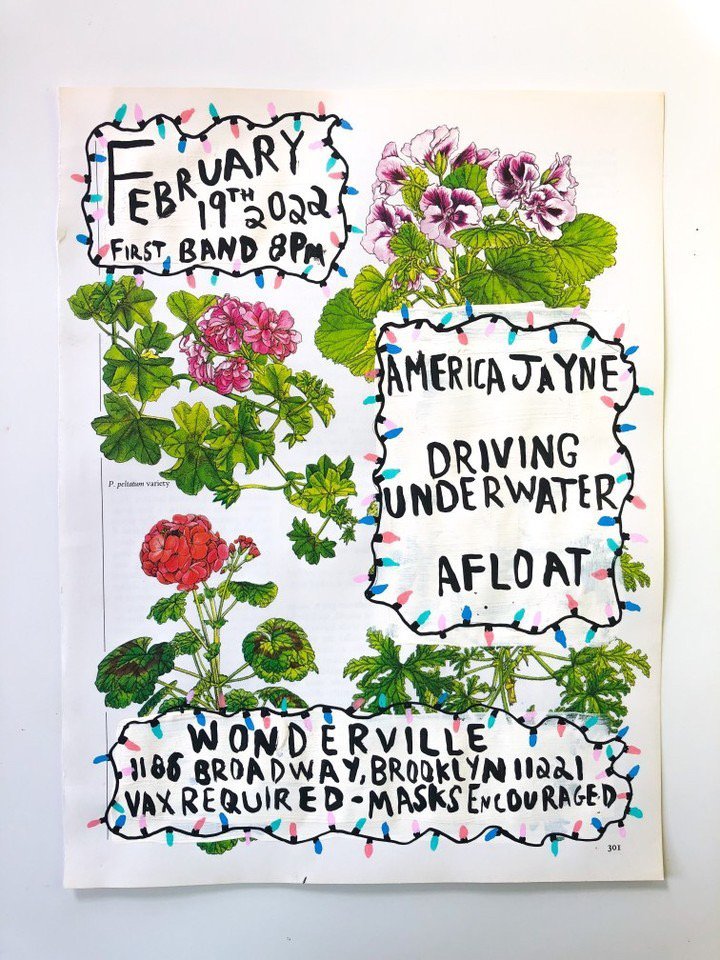 FEBRUARY
19TH 2022
FIRST BAND 8PM
AMERICA JAYNE
DRIVING
UNDERWATER
AFLOAT
P. peltatum variety
WONDERVILLE
1186 BROADWAY, BROOKLYN 11221
VAX REQUIRED - MASKS ENCOURAGED
301